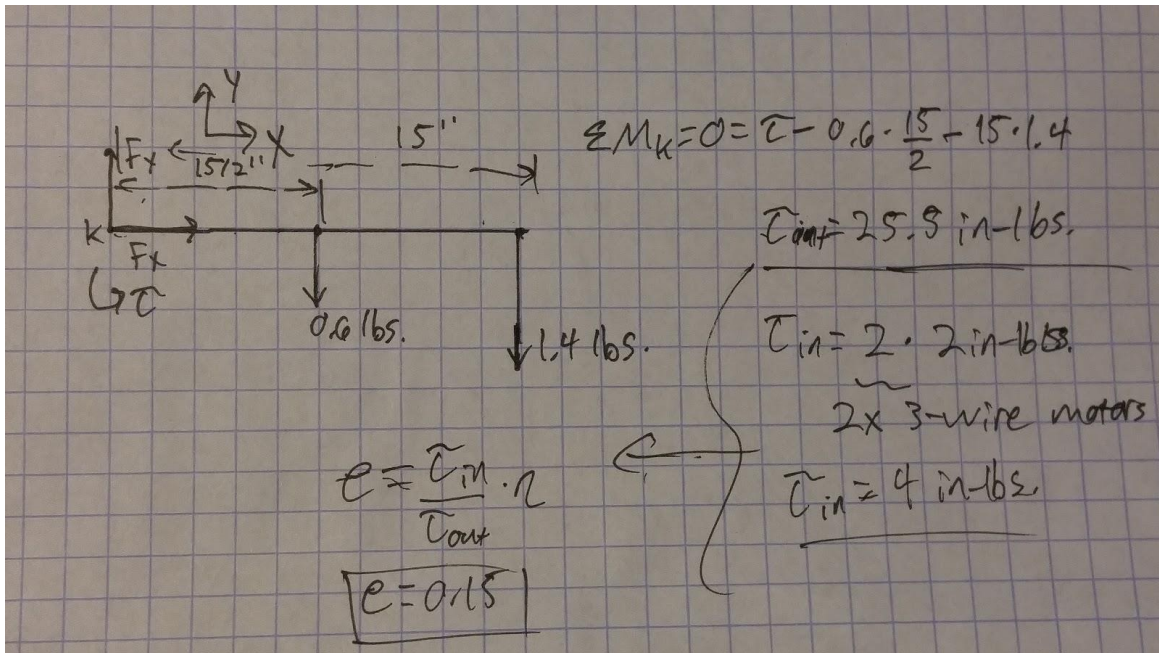 Y
X
Fx
15/2"
15"
K
Fx
τ
0.6 lbs.
1.4 lbs.
ΣM_K=0=τ-0.6·15/2-15·1.4
τout=25.5 in-lbs.
τin=2·2in-lbs.
2x 3-wire motors
τin=4 in-lbs.
e=τin/τout·η
e=0.15